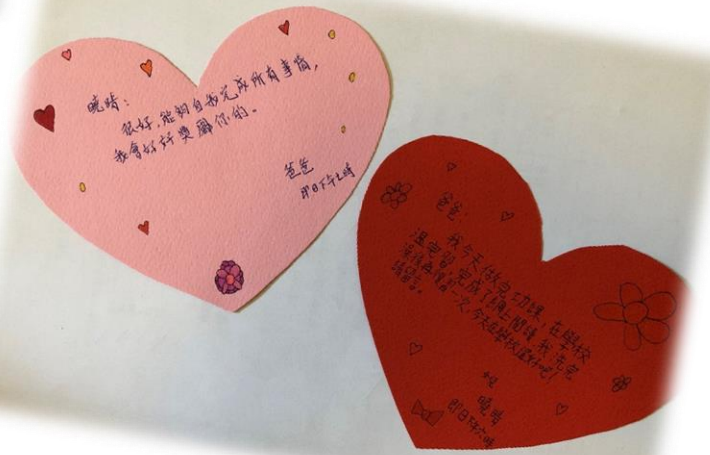 曉晴：
很好，能夠自我完成所有事情，
我會好好獎勵你的。
爸爸
即日下午七時
爸爸：
我今天做完功課，在學校
溫完習，完成了
今天在學校還好吧！
曉晴
即日下午六時